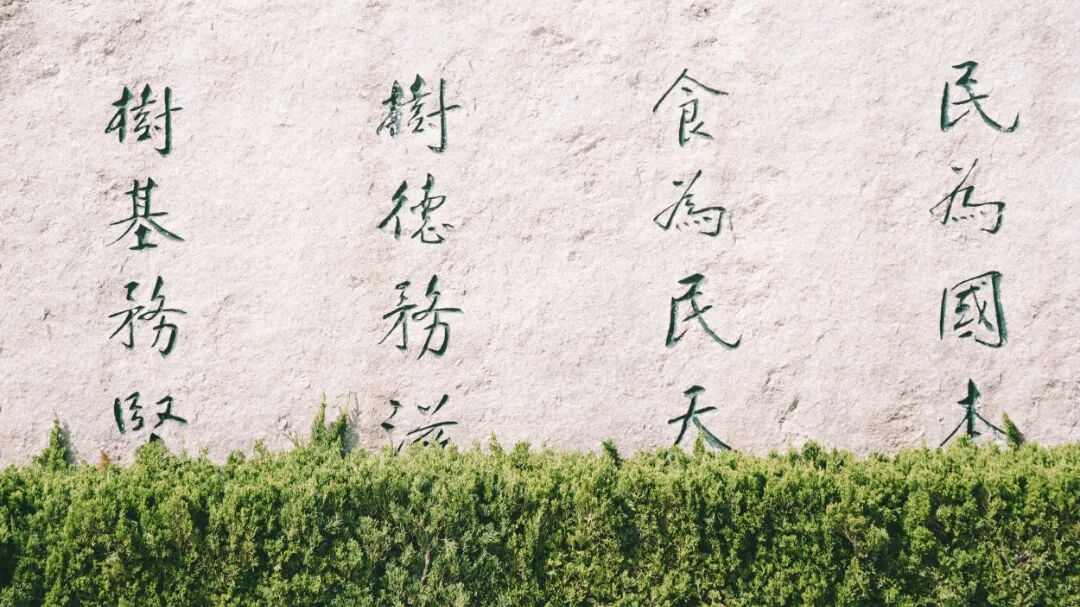 民為國本
食為民天
樹德務滋
樹基務堅